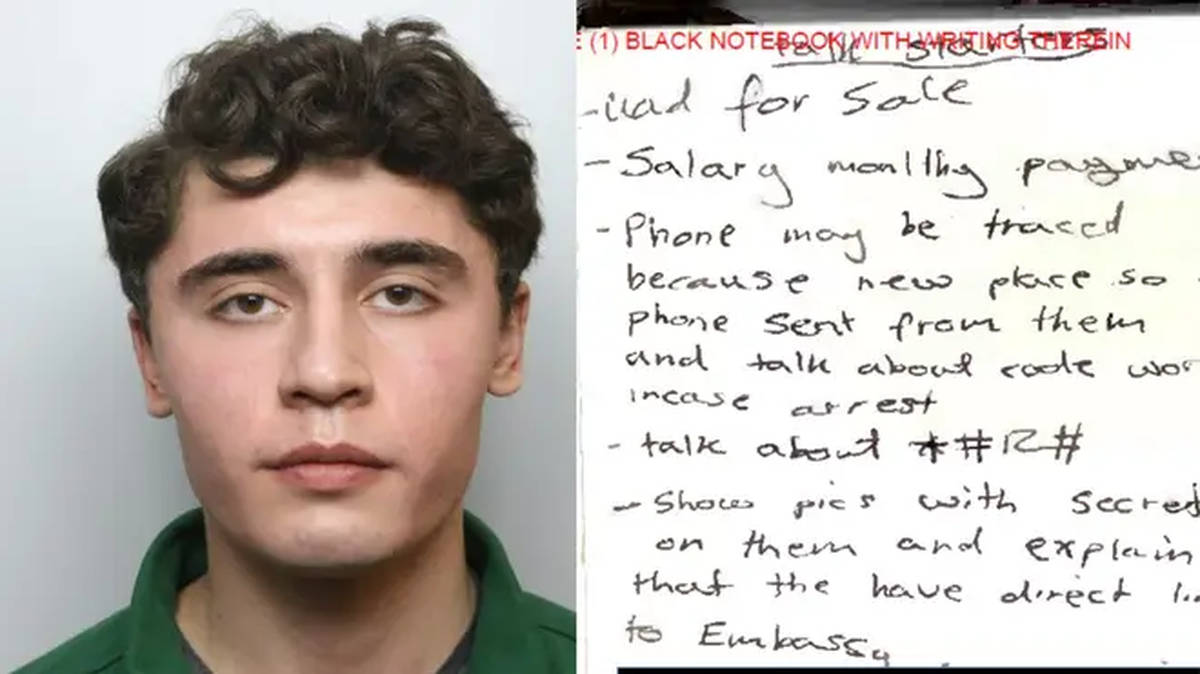 (1) BLACK NOTEBOOK WITH WRITING THEREIN
talk
for sale
- Salary payme
- Phone may be traced
because new place so
phone sent from them
and talk about code wor
incase arrest
- talk about *#
- Show pics with secred
on them and explain
that the have direct li
to Embassy